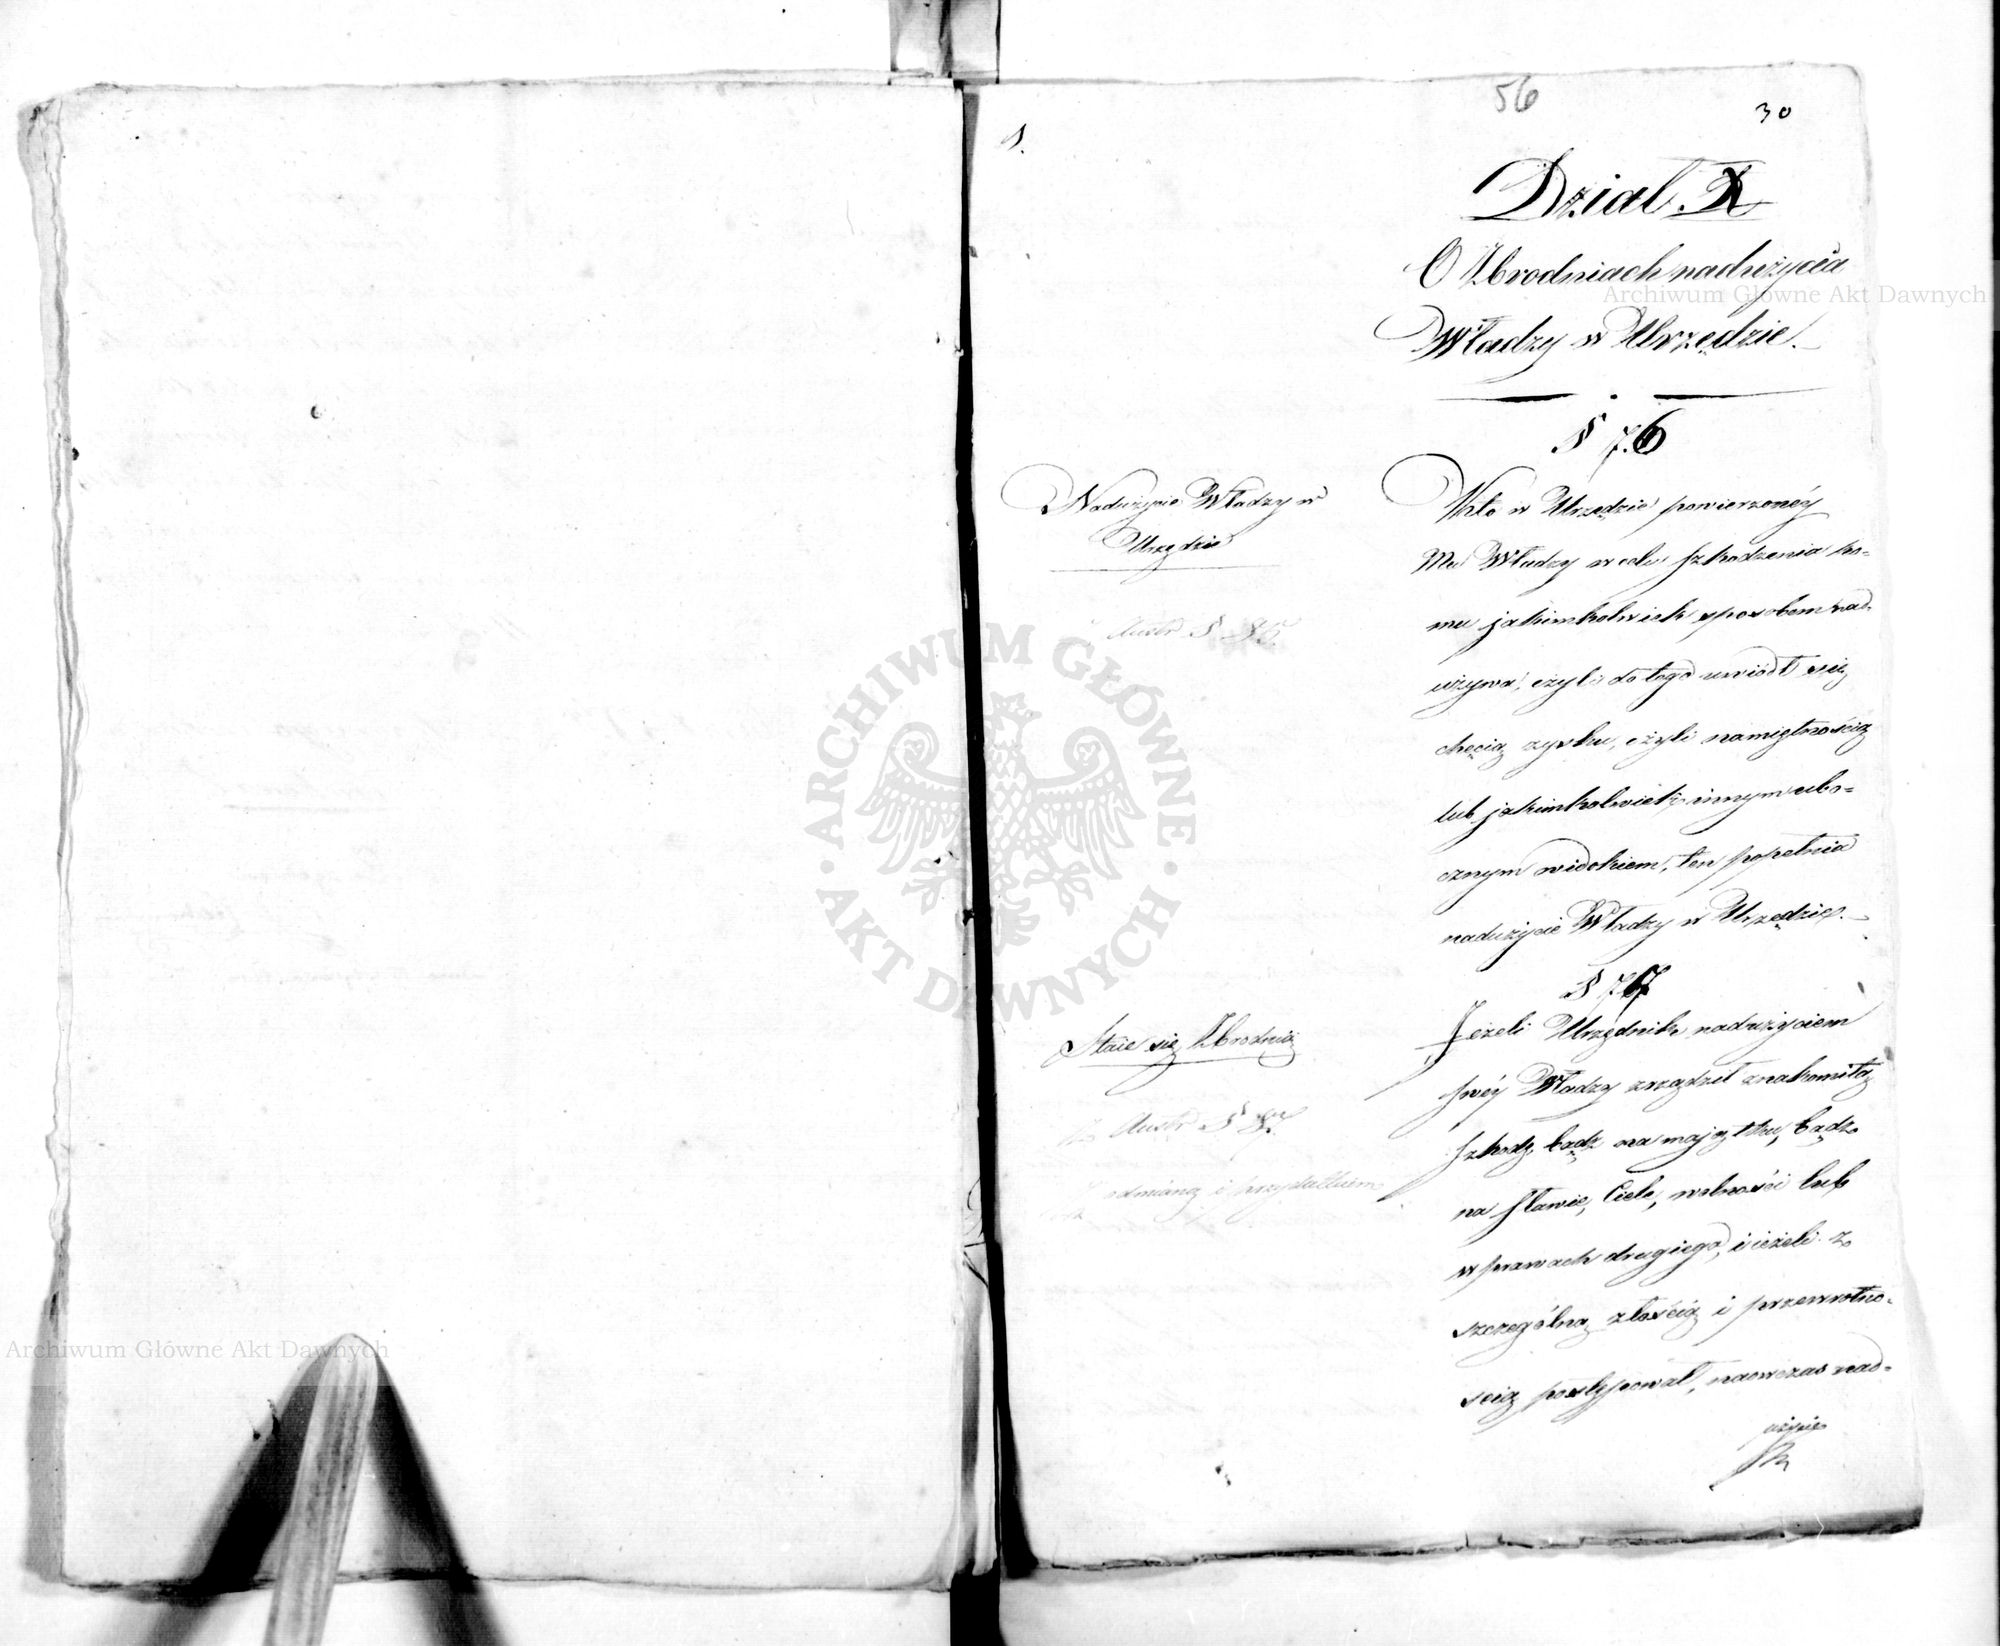 56
30
Dział X
O Zbrodniach nadużycia
Władzy w Urzędzie.
§ 76
Nadużycie Władzy w
Urzędzie
Austr § 85.
Kto w Urzędzie powierzonéy
Mu Władzy w celu szkodzenia ko-
mu jakimkolwiek sposobem nad-
używa, czyli do tego uwiódł się
chęcią zysku, czyli namiętnością
lub jakimkolwiek innym ubo-
cznym widokiem, ten popełnia
nadużycie Władzy w Urzędzie.
§ 77
Staie się Zbrodnią
Z Austr §
odmianą i przydatkiem
Jeżeli Urzędnik nadużyciem
swéy Władzy zrządził znakomitą
szkodę, bądz na majątku, bądz
na sławie, Ciele, wolności lub
w prawach drugiego, i ieżeli z
szczególną złością i przewrotno-
scią postępował, naówczas nad-
użycie
Archiwum Główne Akt Dawnych
Archiwum Główne Akt Dawnych
ARCHIWUM GŁÓWNE
AKT DAWNYCH